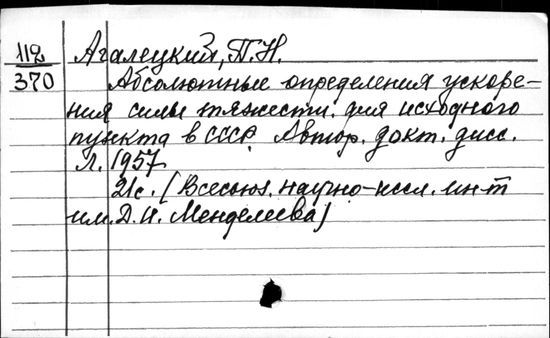 112
370
Агалецкий, П.Н.
Абсолютные определения ускоре-
ния силы тяжести для исходного
пункта в СССР. Автор. докт. дисс.
Л. 1957
21с. (Всесоюз. научно-иссл. ин-т
им. Д.И. Менделеева)